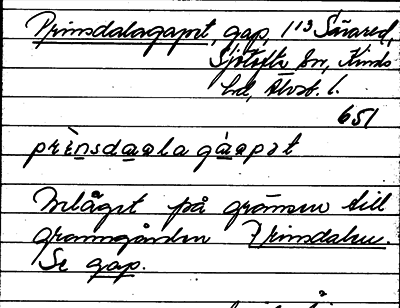 Prinsdalagapet, gap, 1/13 Sävared,
Sjötofta sn, Kinds
hd, Älvsb. l.
651
prìnsdaala gàapət
Beläget på gränsen till
granngården Prinsdalen.
Se gap.